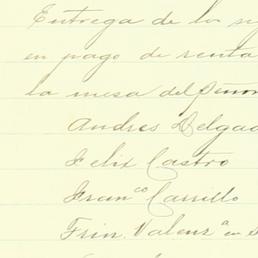 Entrega de los
en pago de renta
la mesa del Peñon
Andres Delgad
Felix Castro
Franco Carrillo
Trin. Valenza en